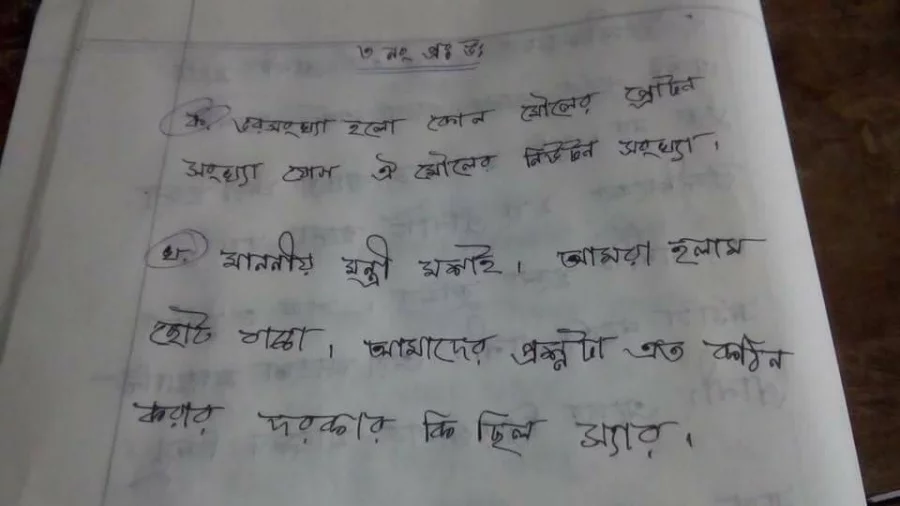 ৩ নং প্রঃ উঃ
ক. ভরসংখ্যা হলো কোন মৌলের প্রোটন
সংখ্যা যোগ ঐ মৌলের নিউটন সংখ্যা।
খ. মাননীয় মন্ত্রী মশাই। আমরা হলাম
ছোট বাচ্চা। আমাদের প্রশ্নটা এত কঠিন
করার দরকার কি ছিল স্যার।